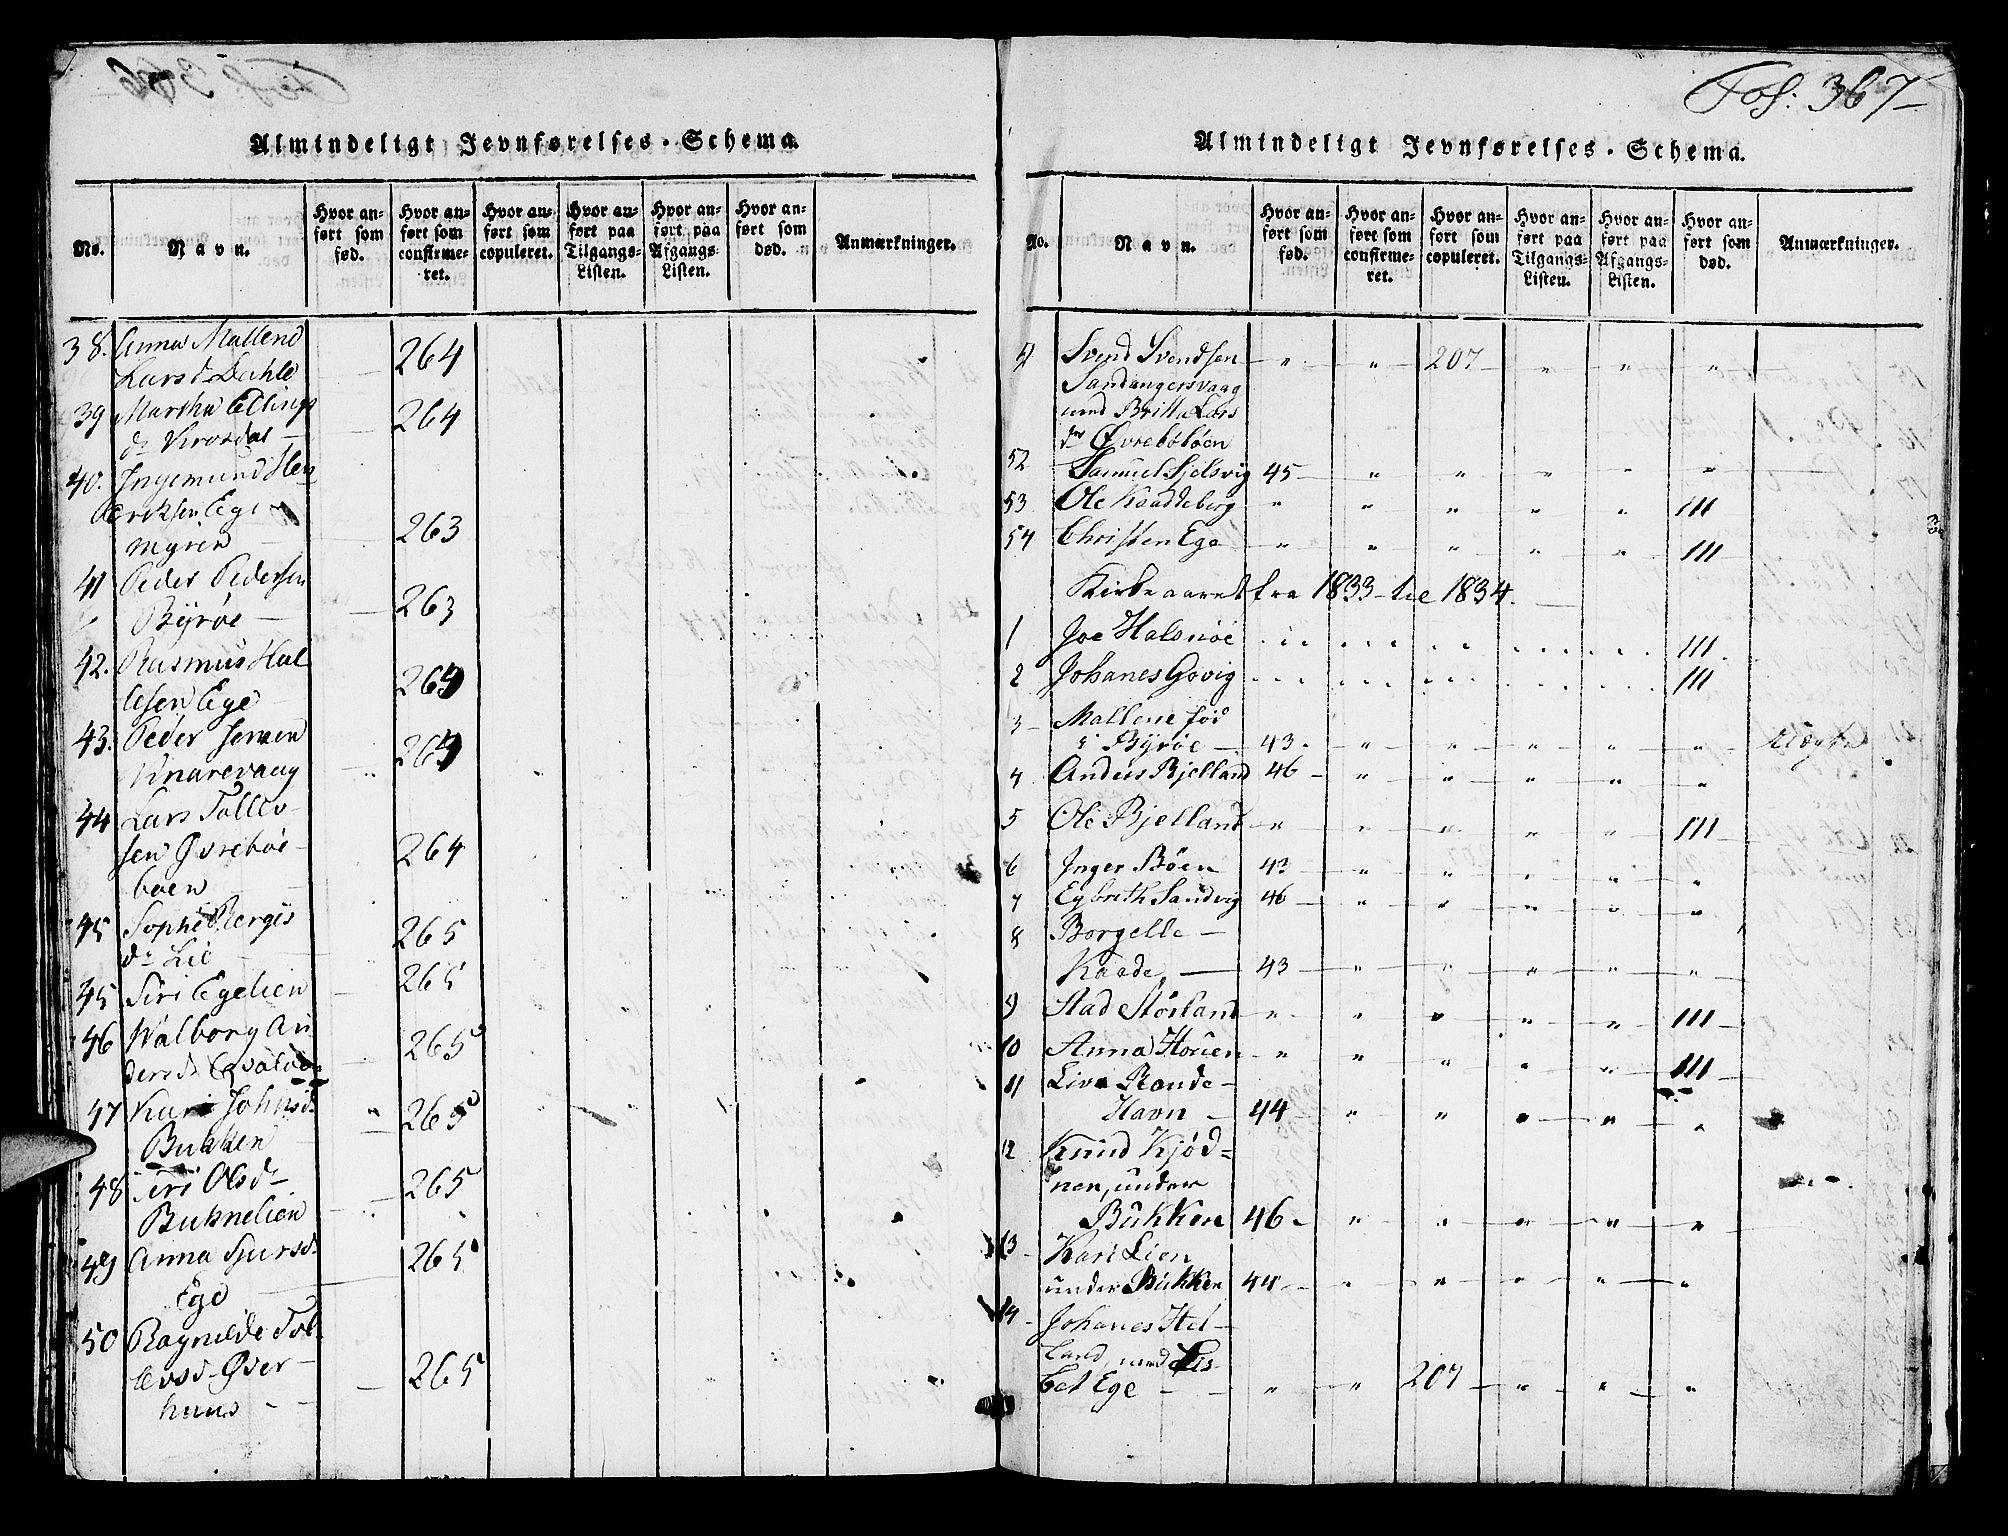 Almindeligt Jevnførelses-Schema.
No.
Navn.
Hvor anført som fød.
Hvor anført som confirmeret.
Hvor anført som copuleret.
Hvor anført paa Tilgangs-Listen.
Hvor anført paa Afgangs-Listen.
Hvor anført som død.
Anmærkninger.
38. Anna Mallene
Larsd Dahle 264
39 Martha Ellings
dr 264
40. Ingemund Hen
Ege
myren 263
41 Peder Pedersen
Byrøe 263
42. Rasmus Hal
Ege 264
43. Peder
Knarevaag 264
44 Lars Tollev
sen Øvrebøe
boen 264
45 Sophi Bergis
dr Lie 265
45 Siri Egelien 265
46 Walborg An
dersd 265
47 Kari Johnsd
Bukken 265
48 Siri Olsd-
Buknelien 265
49 Anna Sjursd
Ege 265
50 Ragnilde Tol
levsd Øver-
huus 265
Fol: 367-
Almindeligt Jevnførelses-Schema.
No.
Navn.
Hvor anført som fød.
Hvor anført som confirmeret.
Hvor anført som copuleret.
Hvor anført paa Tilgangs-Listen.
Hvor anført paa Afgangs-Listen.
Hvor anført som død.
Anmærkninger.
Svend Svendsen " " 207 " " "
Sandangersvaag
med Britta Lars
dr Øvrebøböen
52 Samuel Sjelsvig 45 " " " " "
53 Ole Kaaddeberg " " " " " 111
54 Christen Ege " " " " " 111
Kirkeaaret fra 1833 til 1834.
1 Joe Halsnöe 111
2 Johanes Govig 111
3 Mallene fød
i Byröe 43 " " " " "
4 Anders Bjelland 46 " " " " "
5 Ole Bjelland " " " " " 111
6 Inger Böen 43 " " " " "
7 Egbreth Sandvig 46 " " " " "
8 Borgelle
Kaade 43 " " " " "
9 Aad Störland " " " " " 111
10 Anna Hovien " " " " " 111
11 Liva Rande-
Havn 44 " " " " "
12 Knud Kjöd-
nen, under
Bukken 46 " " " " "
13 Kari Lien
under Bukken 44 " " " " "
14 Johanes Hel-
land med Lis-
bet Ege " " 207 " " "